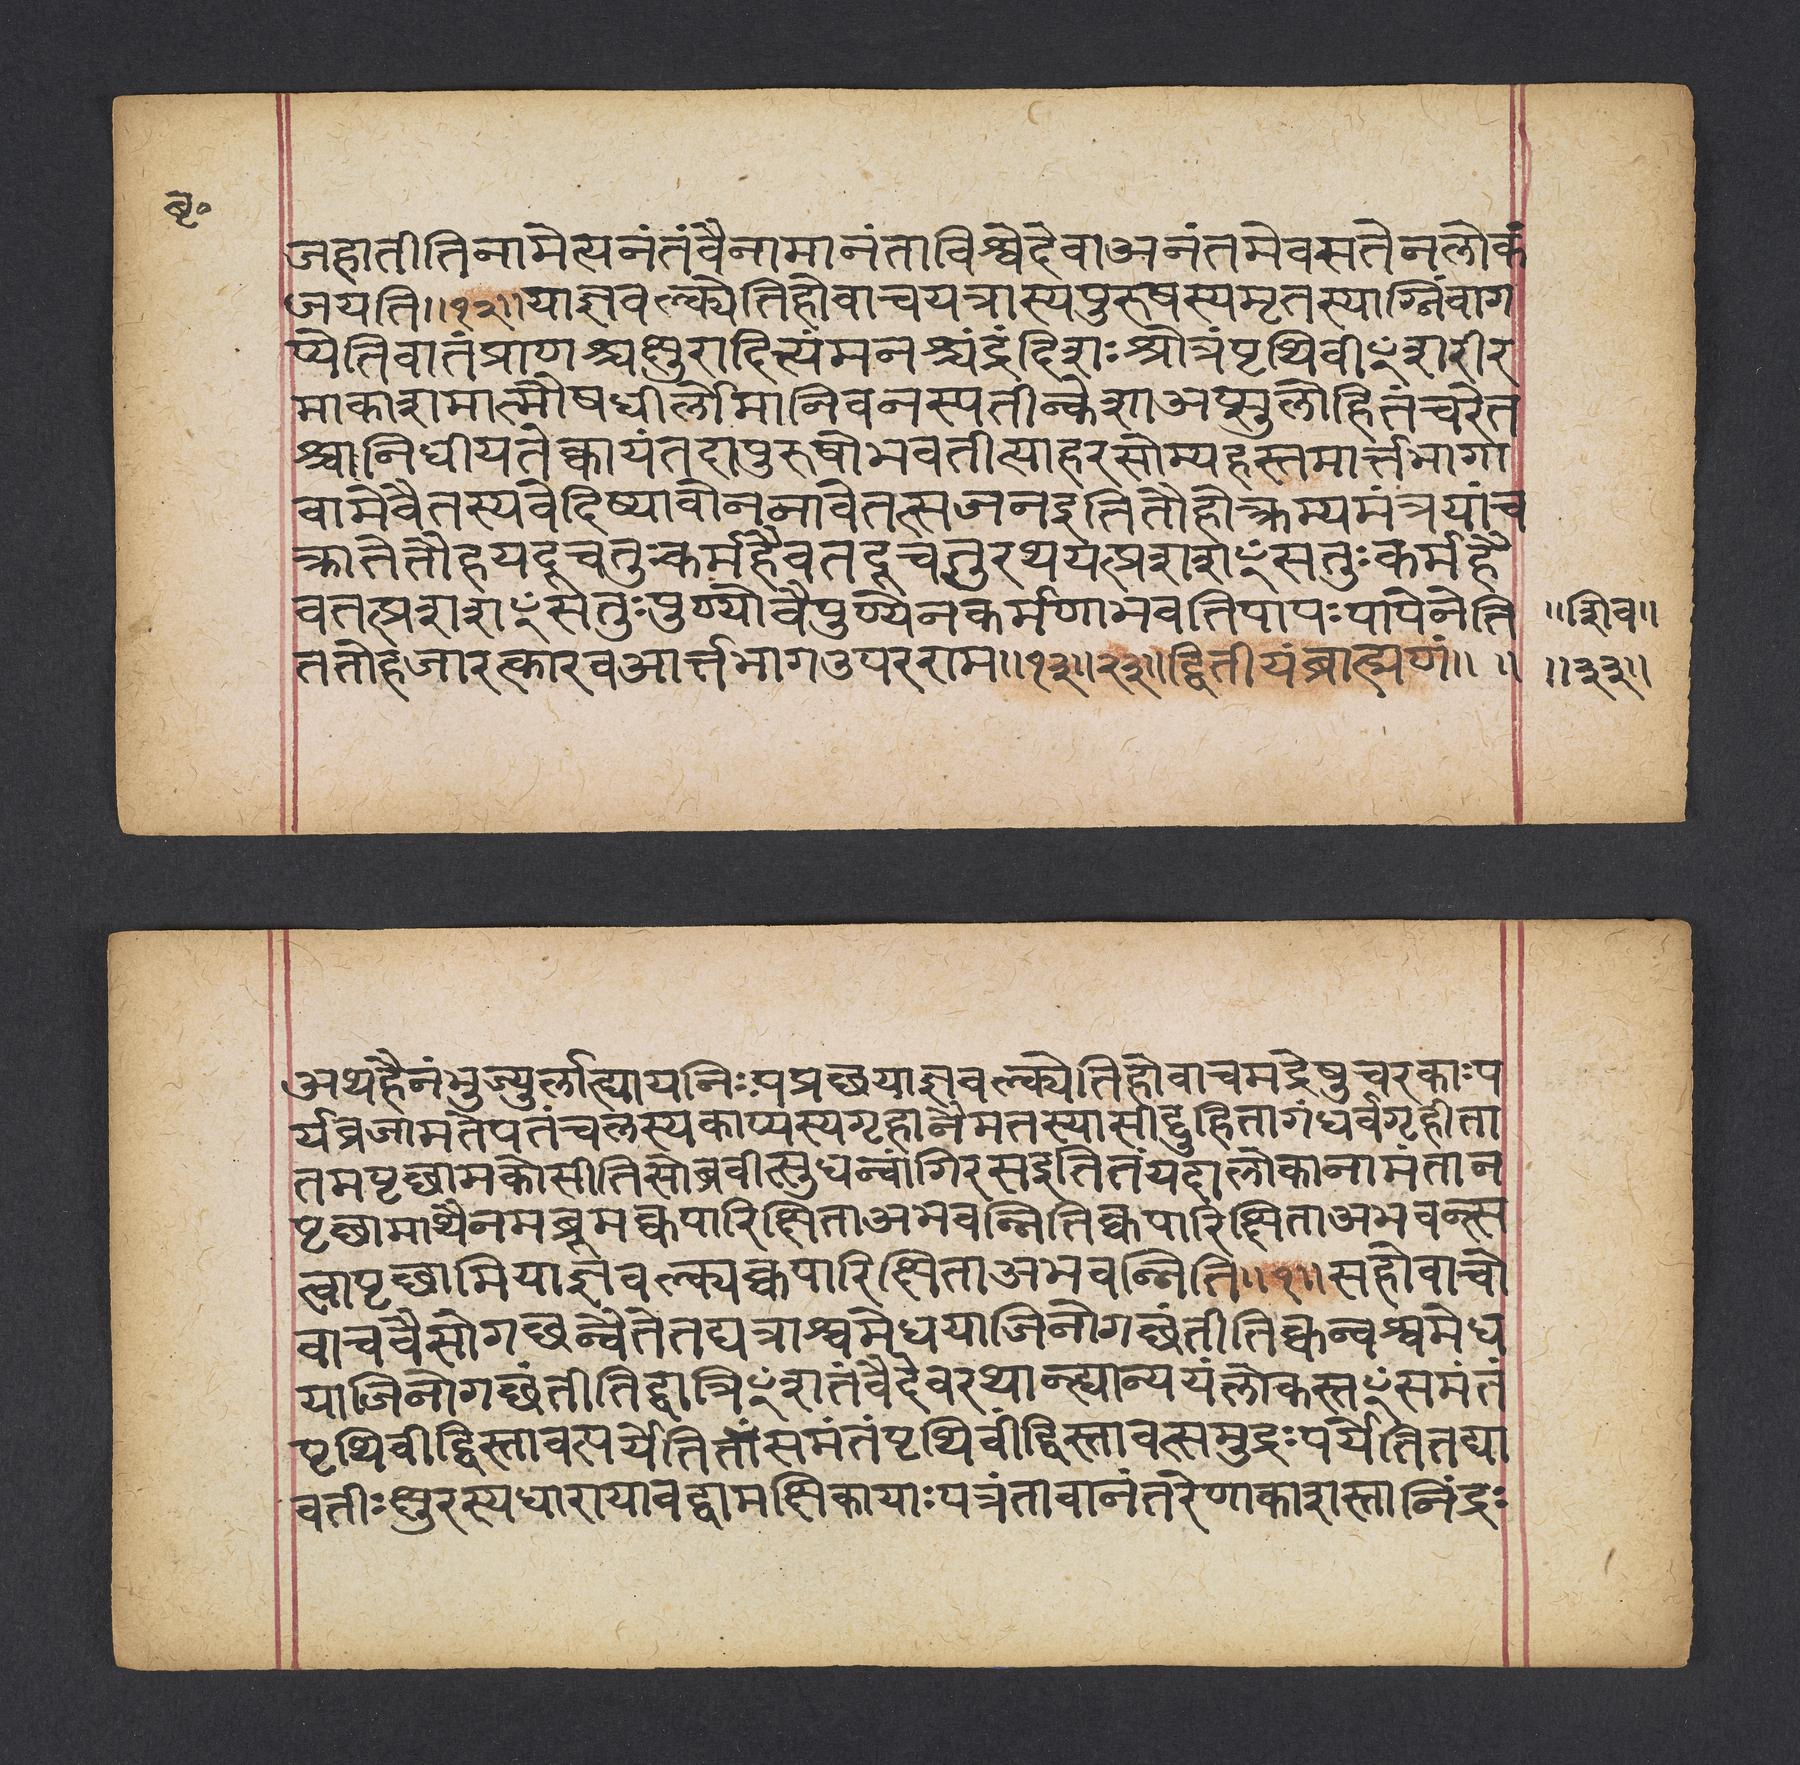 बृ॰
जहातीतिनामेत्यनंतंवैनामानंताविश्वेदेवाअनंतमेवसतेनलोकं
जयति॥१२॥याज्ञवल्क्येतिहोवाचयत्रास्यपुरुषस्यमृतस्याग्निंवाग
प्येतिवातंप्राणश्चक्षुरादित्यंमनश्चंद्रंदिशःश्रोत्रंपृथिवीꣳशरीर
माकाशमात्मौषधीर्लोमानिवनस्पतीन्केशाअप्सुलोहितंचरेत
श्चानिधीयतेक्वायंतदापुरुषोभवतीत्याहरसोम्यहस्तमार्त्तभागा
वामेवैतस्यवेदिष्यावोननावेतत्सजनइतितौहोत्क्रम्यमंत्रयांच
क्रातेतौहयदूचतुःकर्महैवतदूचतुरथयत्प्रशशꣳसतुःकर्महै
वतत्प्रशशꣳसतुःपुण्योवैपुण्येनकर्मणाभवतिपापःपापेनेति
॥शिव॥
ततोहजारत्कारवआर्त्तभागउपरराम॥१३॥२३॥द्वितीयंब्राह्मणं॥ ॥
॥३३॥
अथहैनंभुज्युर्लाह्यायनिःपप्रछयाज्ञवल्क्येतिहोवाचमद्रेषुचरकाःप
र्यव्रजामतेपतंचलस्यकाप्यस्यगृहानैमतस्यासीद्दुहितागंधर्वगृहीता
तमपृछामकोसीतिसोब्रवीत्सुधन्वांगिरसइतितंयदालोकानामंतान
पृछामाथैनमब्रूमक्वपारिक्षिताअभवन्नितिक्वपारिक्षिताअभवन्त्स
त्वापृछामियाज्ञवल्क्यक्वपारिक्षिताअभवन्निति॥१॥सहोवाचो
वाचवैसोगछन्वैतेतद्यत्राश्वमेधयाजिनोगछंतीतिक्वन्वश्वमेध
याजिनोगछंतीतिद्वात्रिꣳशतंवैदेवरथान्ह्यान्ययंलोकस्तꣳसमंतं
पृथिवीद्विस्तावत्पर्येतितांसमंतंपृथिवींद्विस्तावत्समुद्रःपर्येतितद्या
वतीःक्षुरस्यधारायावद्वामक्षिकायाःपत्रंतावानंतरेणाकाशस्तानिंद्रः